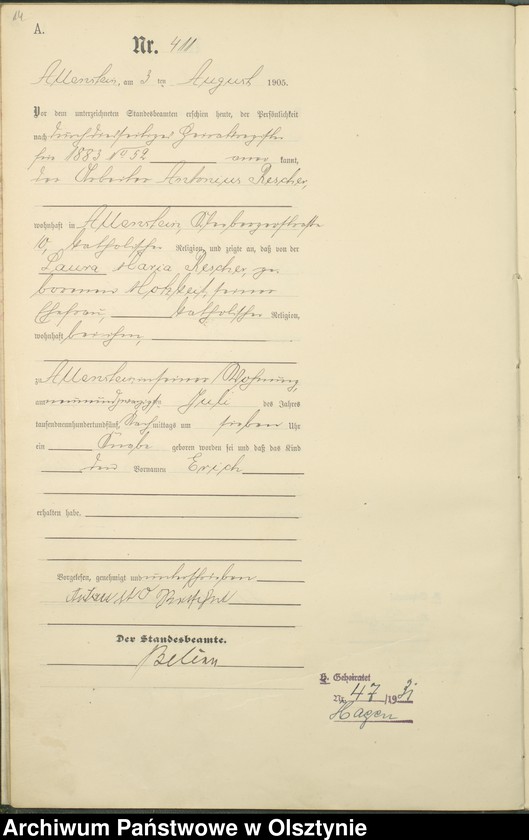 14
A.
Nr. 411
Allenstein, am 3 ten August 1905.
Vor dem unterzeichneten Standesbeamten erschien heute, der Persönlichkeit
nach durch diesseitiges Heiratsregister
für 1883 No 52 aner kannt,
der Arbeiter Antonius Rescher,
wohnhaft in Allenstein,
10, katholischer Religion, und zeigte an, daß von der
Laura Maria Rescher, ge
borenen seiner
Ehefrau, katholischer Religion,
wohnhaft bei ihm,
zu Allenstein in seiner Wohnung
am neunundzwanzigsten Juli des Jahres
tausendneunhundertundfünf, Nachmittags um sieben Uhr
ein Knabe geboren worden sei und daß das Kind
den Vornamen Erich
erhalten habe.
Vorgelesen, genehmigt und unterschrieben
Der Standesbeamte.
H. Geheiratet
Nr. 47 /1931
Hagen
Archiwum Państwowe w Olsztynie